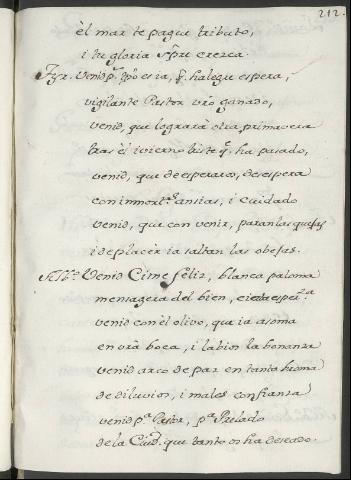 212.
èl mar te pague tributo,
i tu gloria spre crezca.
venid, que lograrà otra primavera
vigilante Pastor vro ganado,
tras èl ivierno triste q. ha pasado,
venid, que de esperaros, desespera
con inmortes ansias, i cuidado
venid, que con venir, paran las quejas
i de placèr ia saltan las obejas.
Venid Cisne feliz, blanca paloma
mensagera del bien,
venid con èl olivo, que ia asoma
en vrà boca, i labios la bonanza
venid arco de paz en tanta broma
de diluvios, i males confianza
venid pa Pastor, pa Prelado
de la Ciud. que tanto os ha deseado.